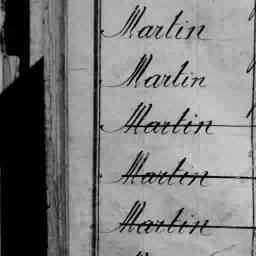 Martin
Martin
Martin
Martin
Martin